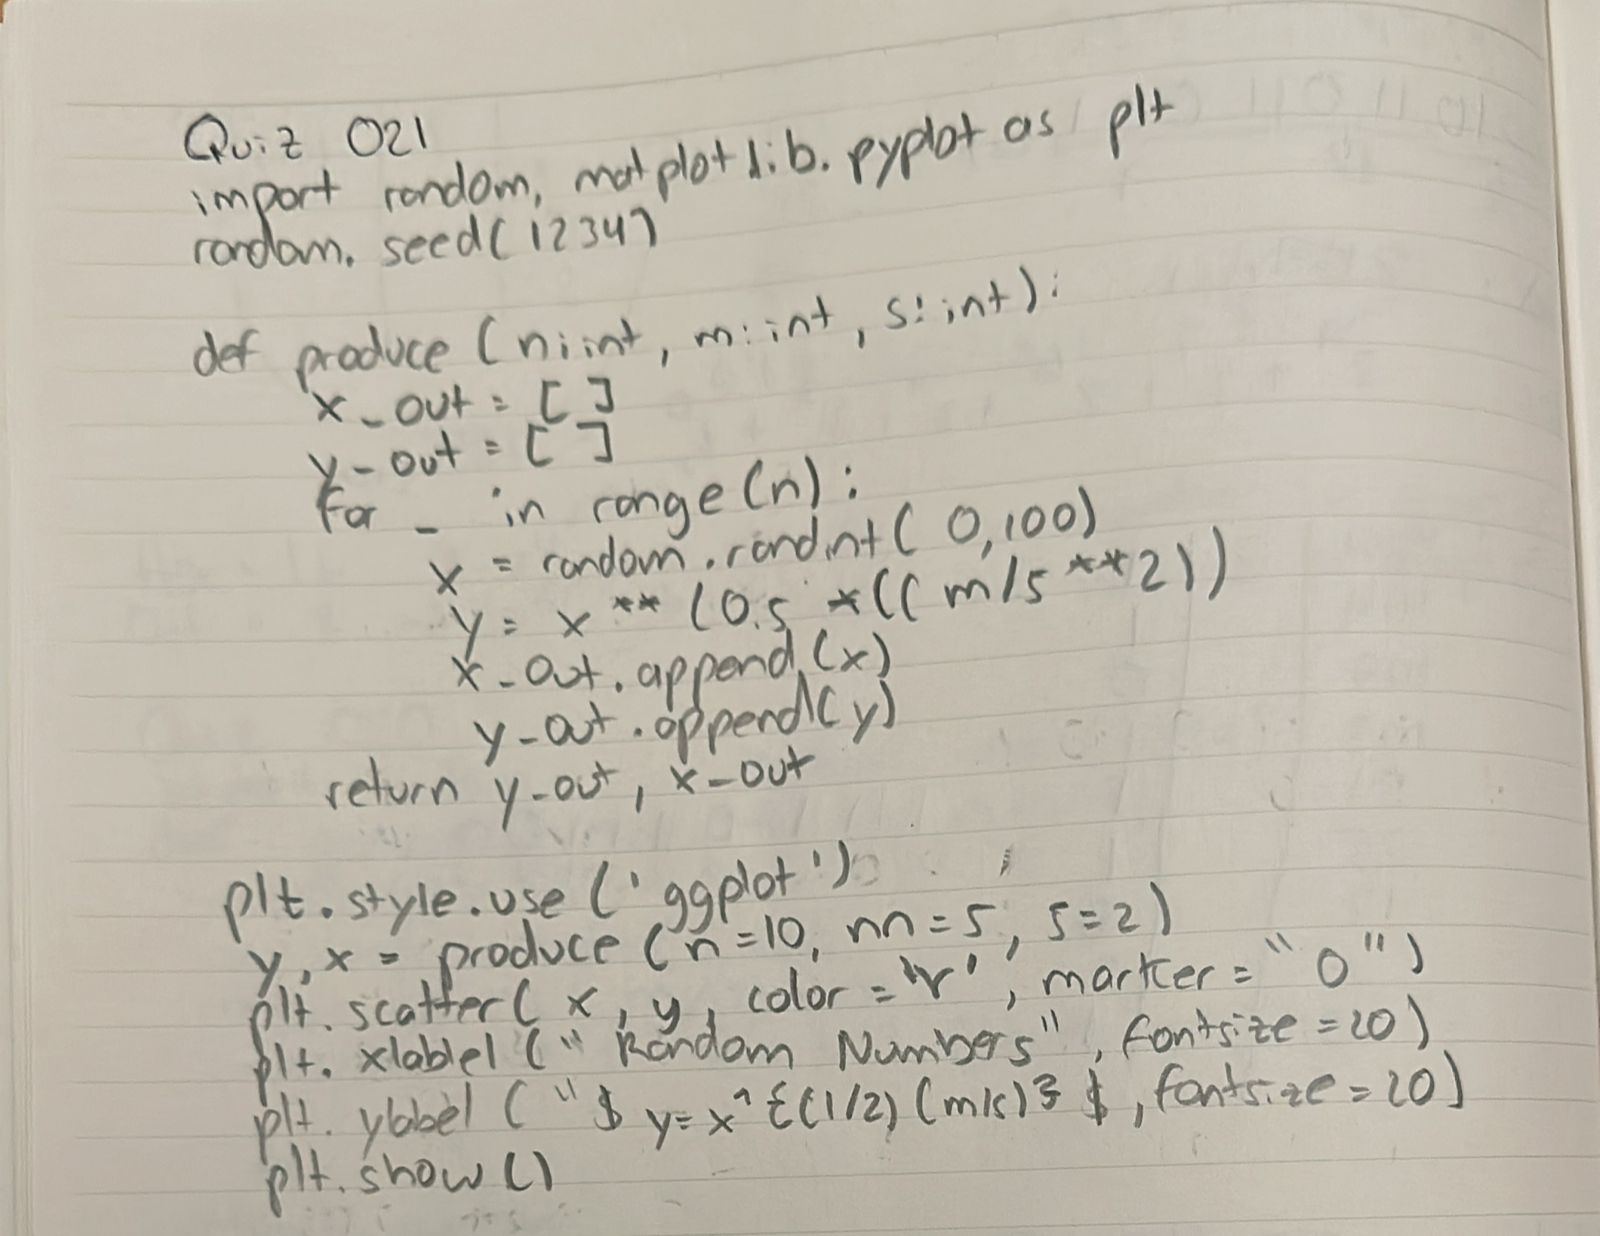 Quiz 021
import random, matplotlib.pyplot as plt
random.seed(1234)
def produce (n:int, m:int, s:int):
x_out = []
y_out = []
for _ in range(n):
x = random.randint(0,100)
y = x ** (0.5 *((m/s**2))
x_out.append(x)
y_out.append(y)
return y_out, x_out
plt.style.use('ggplot')
y,x = produce (n=10, m=5, s=2)
plt.scatter(x, y, color='r', marker="o")
plt.xlablel ("Random Numbers", fontsize=20)
plt.ylabel ("$ y=x^{(1/2)(m/s)} $, fontsize=20)
plt.show()